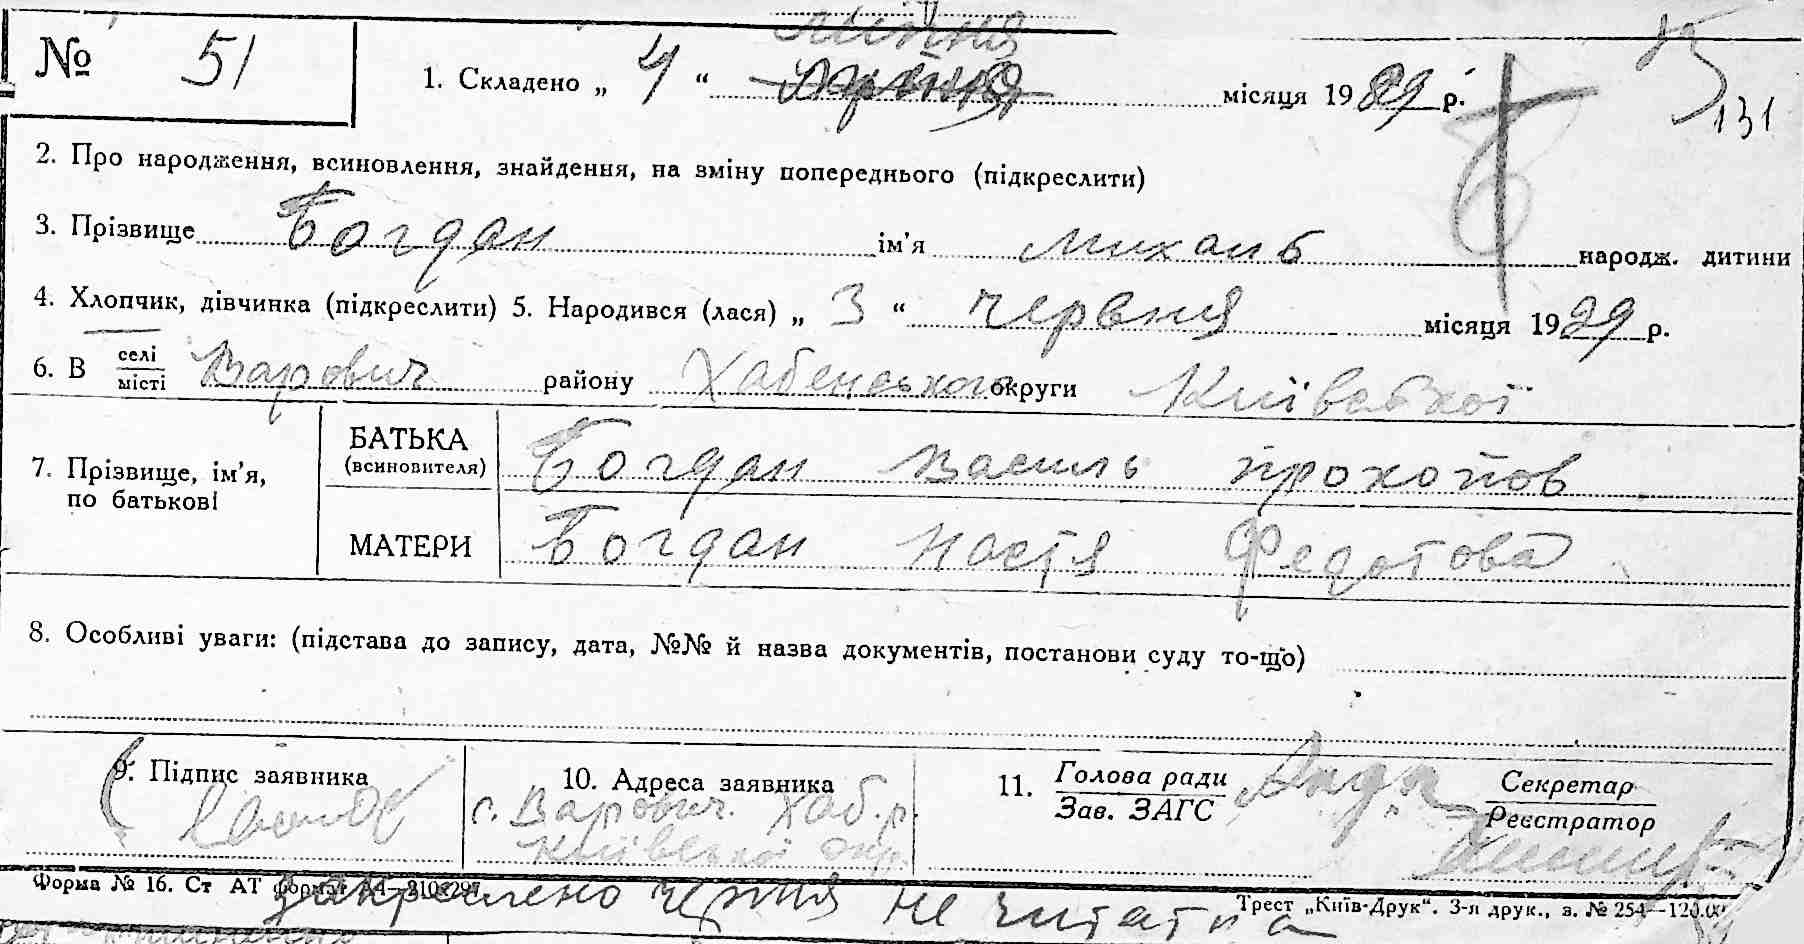 липня
№ 51
1. Складено „ 4 “ червня місяця 1929 р.
131
2. Про народження, всиновлення, знайдення, на зміну попереднього (підкреслити)
3. Прізвище Богдан ім’я Михаиб народж. дитини
4. Хлопчик, дівчинка (підкреслити) 5. Народився (лася) „ 3 “ червня місяця 1929 р.
6. В селі/місті Варович району Хабенського округи Київської
7. Прізвище, ім’я, по батькові
БАТЬКА (всиновителя) Богдан Василь Прокопов
МАТЕРИ Богдан Настя Федотова
8. Особливі уваги: (підстава до запису, дата, №№ й назва документів, постанови суду то-що)
9. Підпис заявника
10. Адреса заявника
с. Варович. Хаб. р.
Київської окр.
11. Голова ради/Зав. ЗАГС Секретар/Реєстратор
Форма № 16. Ст АТ формат А4—
Трест „Київ-Друк“. 3-я друк., з. № 254—120.00
закреслено червня не читати